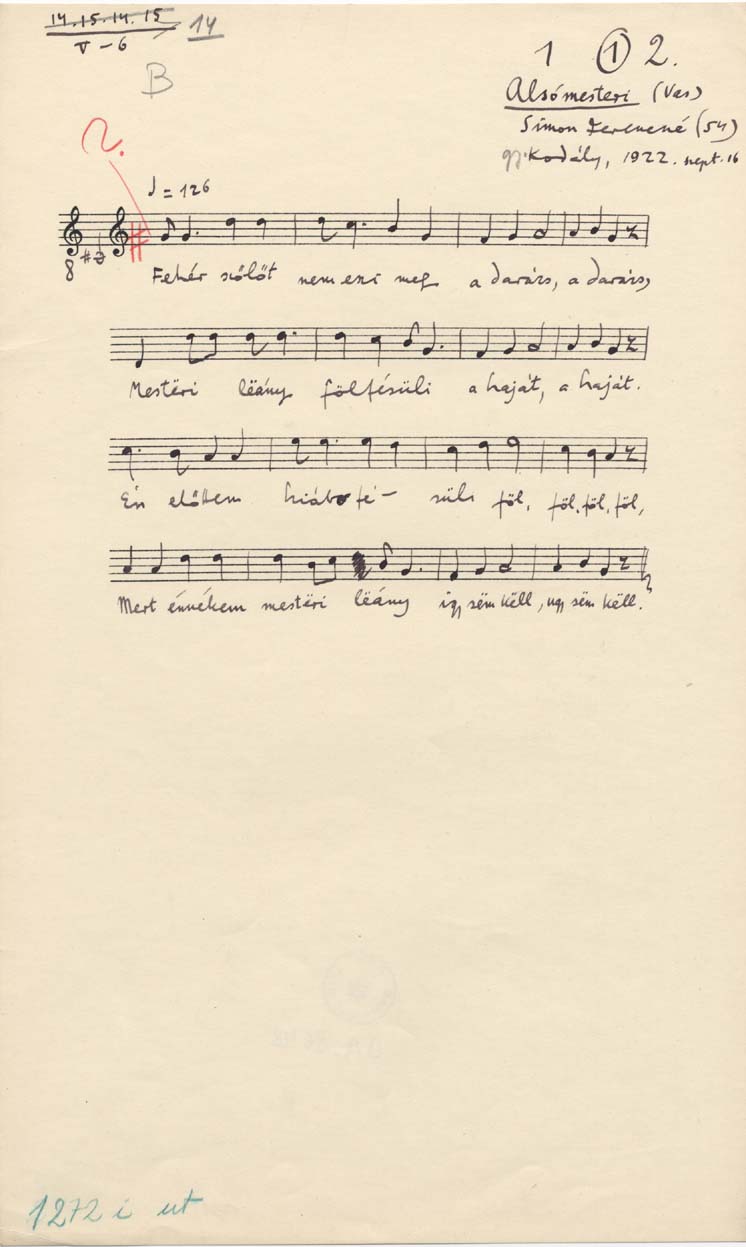 14.15.14.15 14
V-6
B
1 1 2.
Alsómesteri (Vas)
Simon Ferencné (54)
gy. Kodály, 1922. sept. 16
?.
= 126
8
Fehér szőlőt nem eszi meg a darázs, a darázs,
Mestëri lëány fölfésüli a haját, a haját.
Én előttem hiábo fé- süli föl, föl, föl, föl,
Mert énnékem mestëri lëány így sëm këll, úgy sëm këll.
1272 i ut